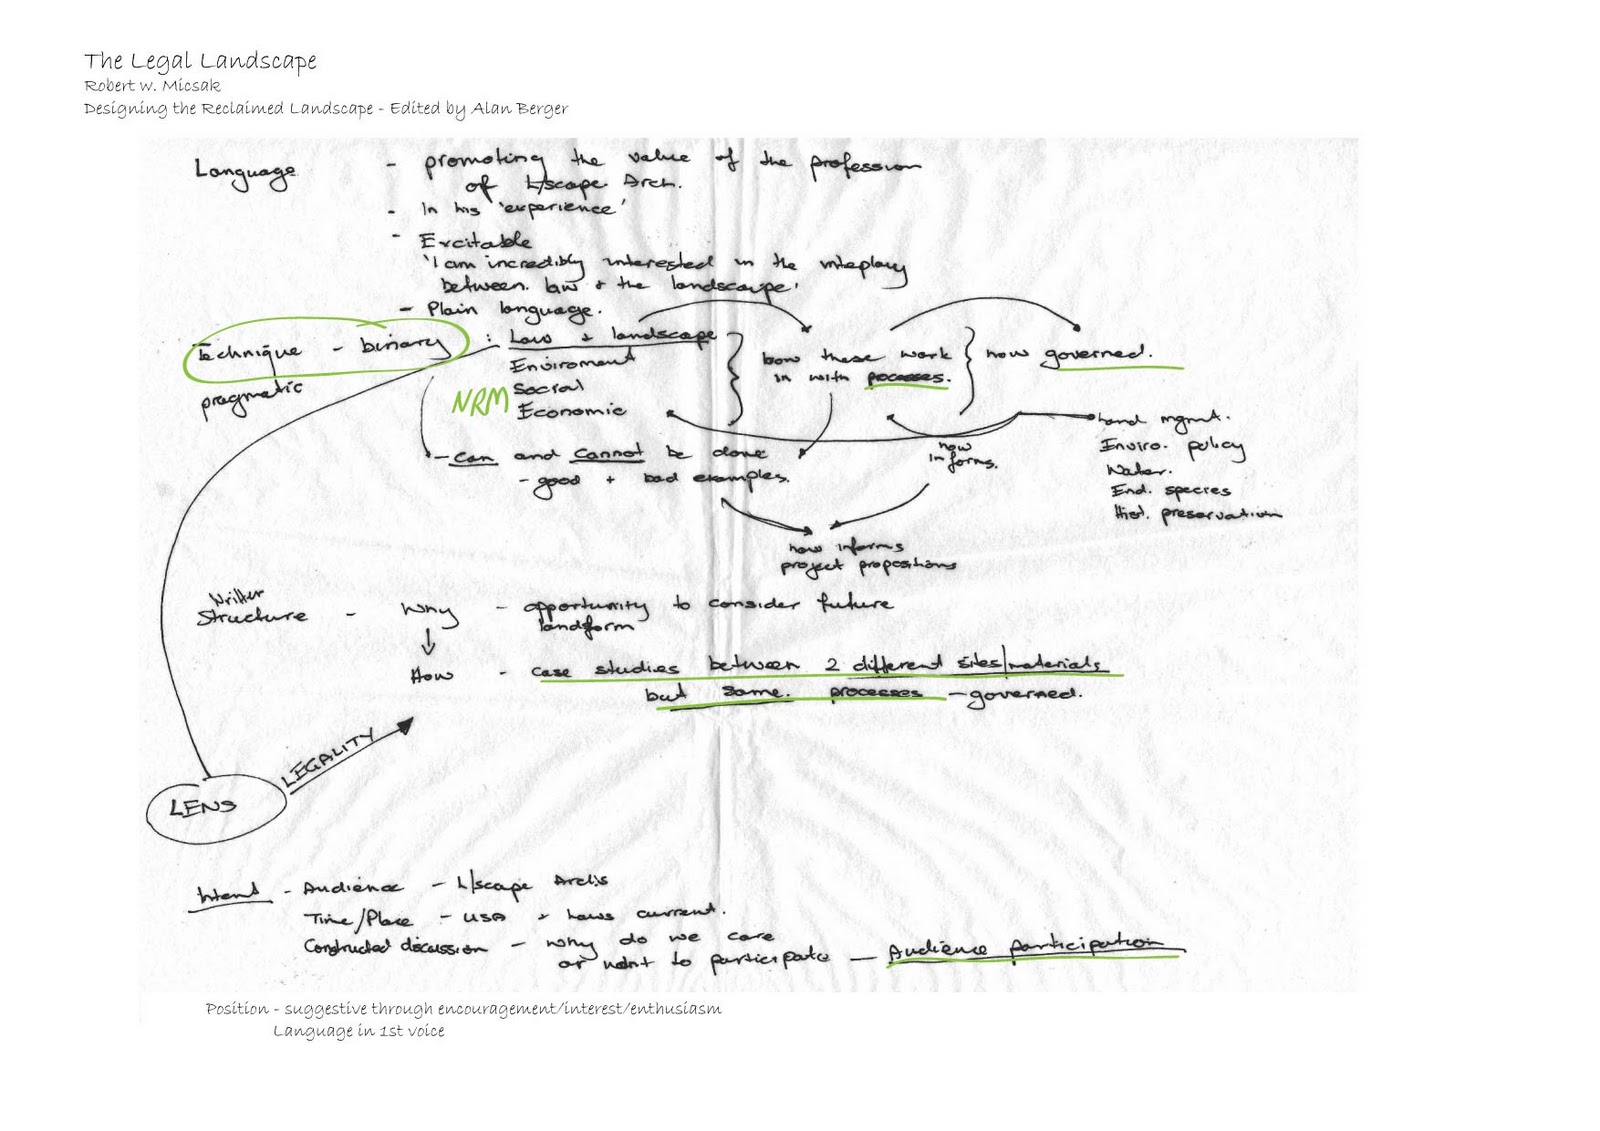 The Legal Landscape
Robert w. Micsak
Designing the Reclaimed Landscape - Edited by Alan Berger
Language - promoting the value of the profession
of L/scape Arch.
- In his 'experience'
- Excitable
'I am incredibly interested in the inteplay
between law + the landscape.'
- Plain language.
Technique - binary : Law + landscape
pragmatic
Enviroment
NRM Social
Economic
how these work
in with pocesses.
how governed.
- can and cannot be done
- good + bad examples.
how
informs.
Land mgmt.
Enviro. policy
Water.
End. species
Hist. preservation
how informs
project propositions
Written
Structure - Why - opportunity to consider future
landform
How - case studies between 2 different sites/materials
but same processes - governed.
LEGALITY
LENS
Intent - Audience - L/scape Archs
Time/Place - USA + Laws current.
Constructed discussion - why do we care
or want to participate - Audience participation
Position - suggestive through encouragement/interest/enthusiasm
Language in 1st voice